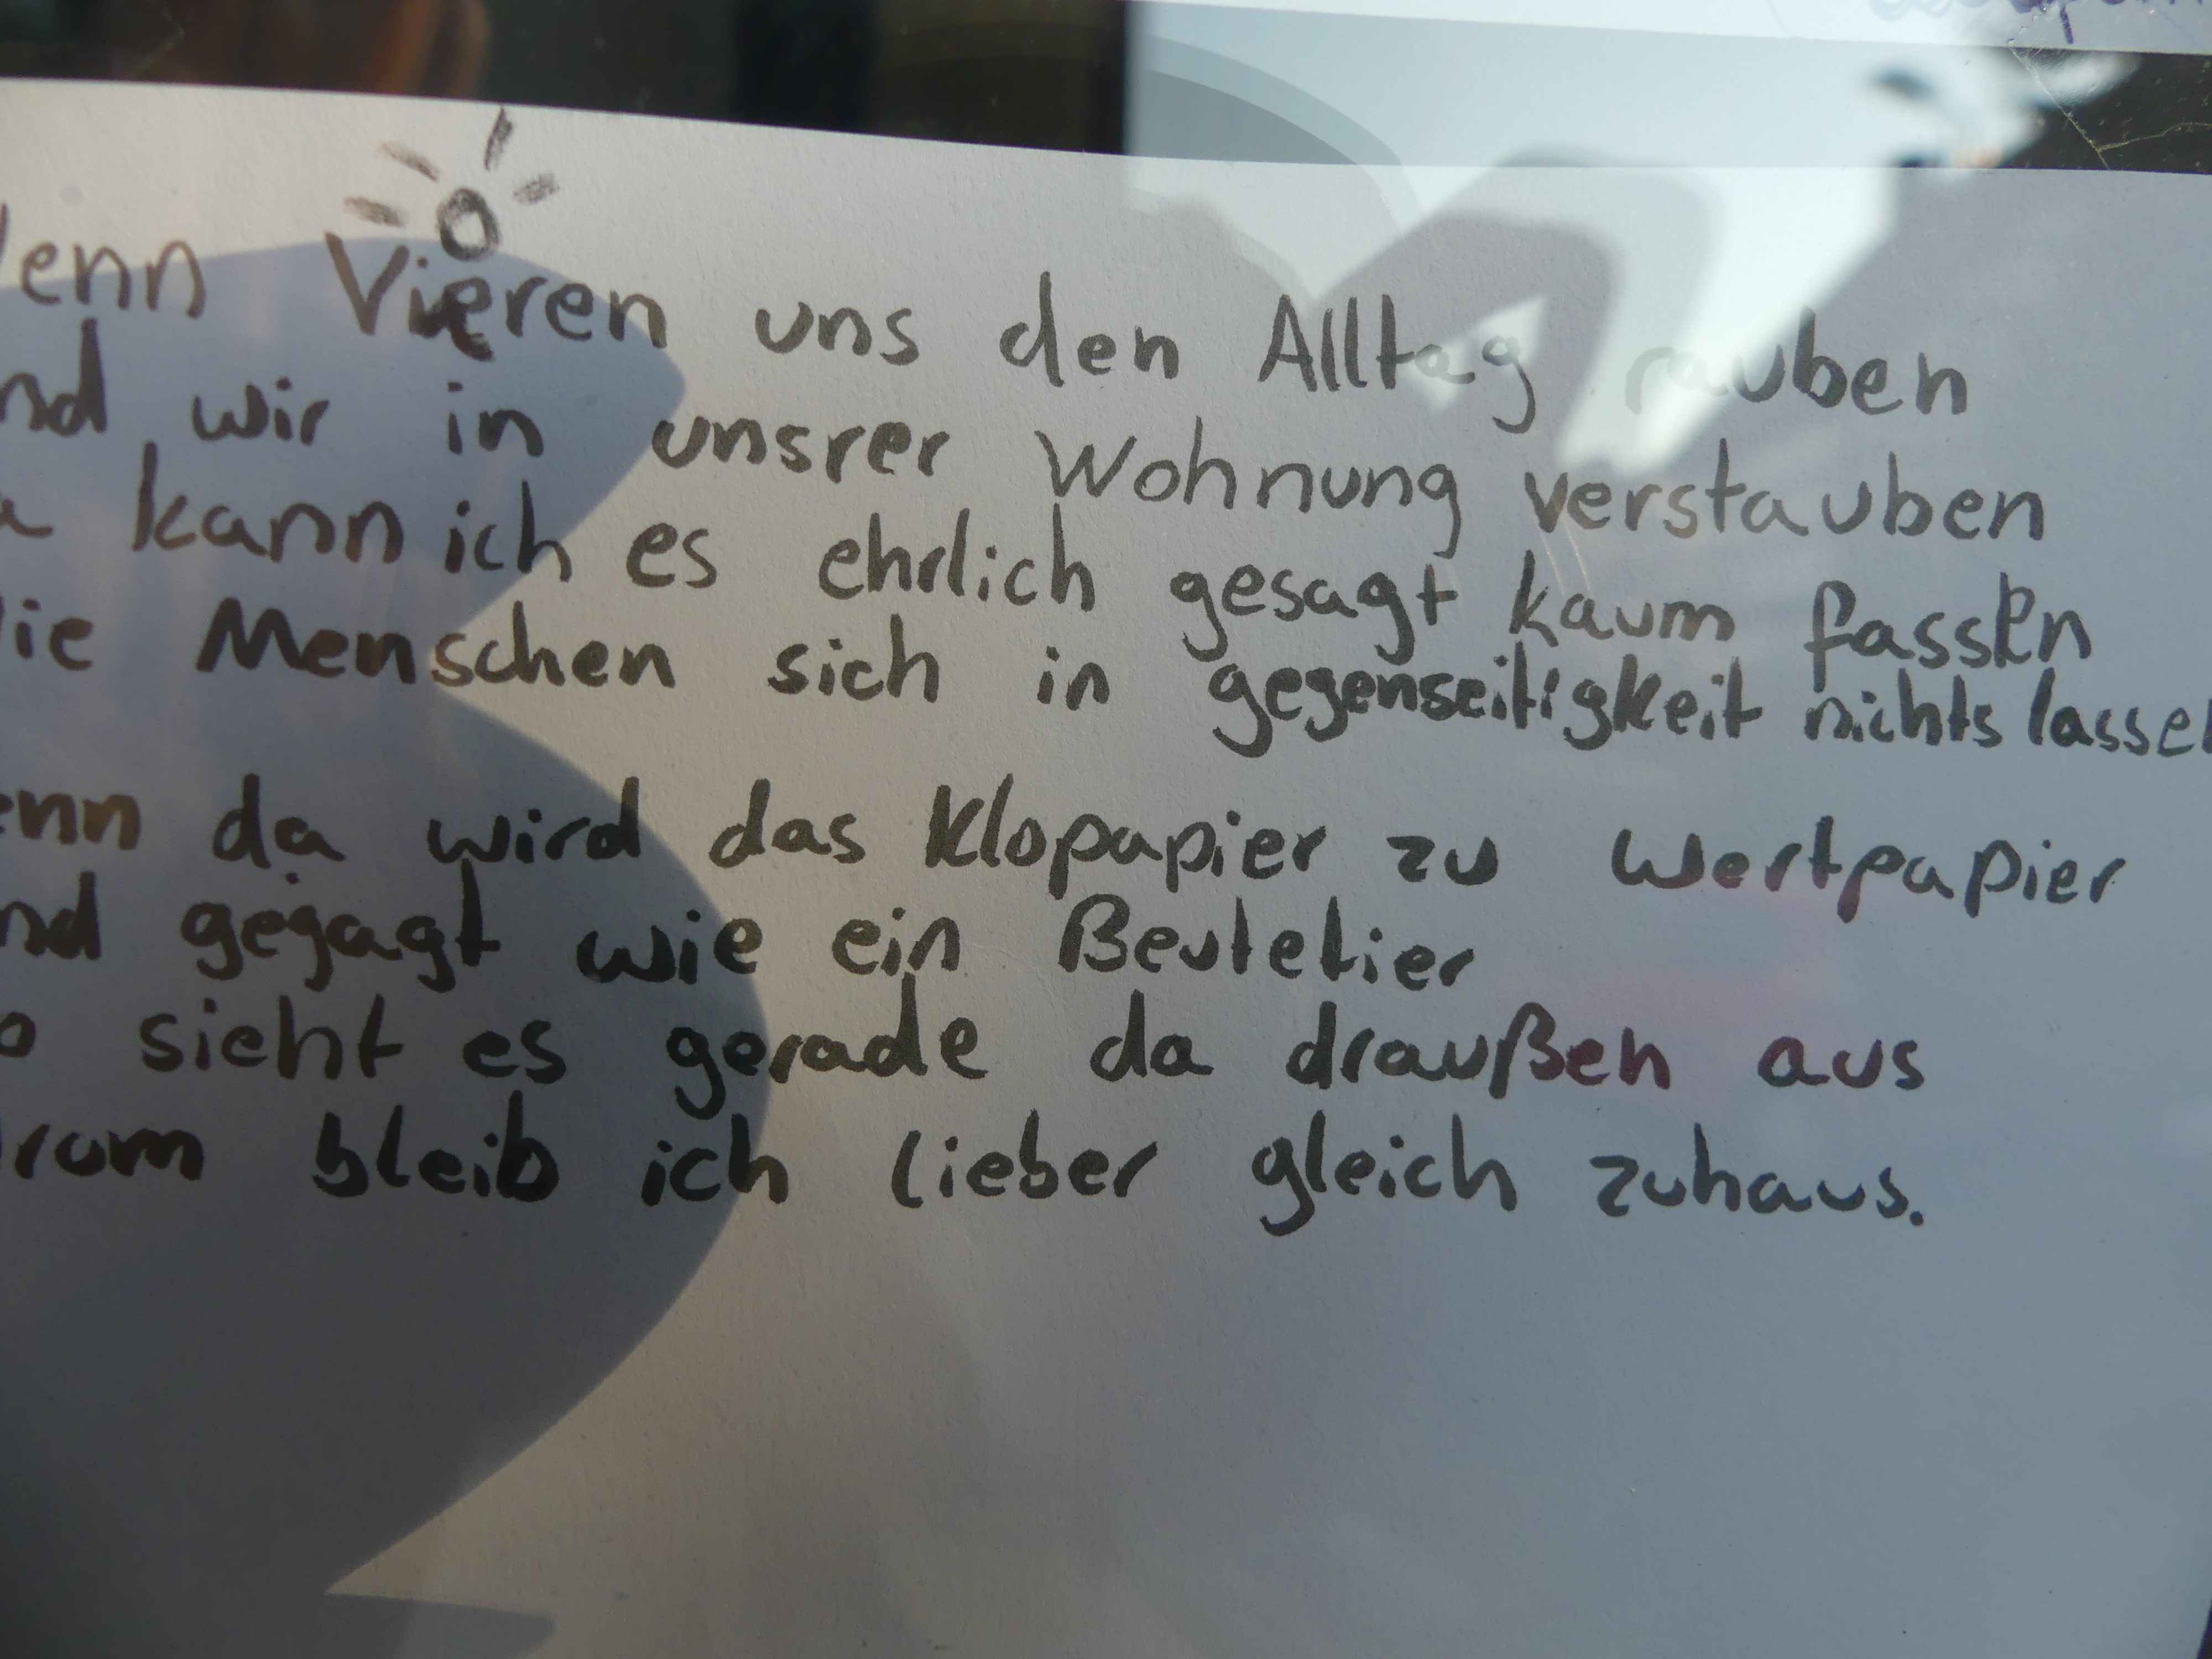 enn Vieren uns den Alltag rauben
nd wir in unsrer Wohnung verstauben
a kann ich es ehrlich gesagt kaum fassen
ie Menschen sich in gegenseitigkeit nichts lassen
enn da wird das Klopapier zu Wertpapier
nd gejagt wie ein Beutetier
o sieht es gerade da draußen aus
rum bleib ich lieber gleich zuhaus.